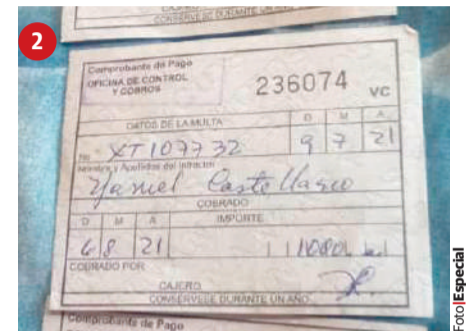 CONSERVESE DURANTE UN AÑO
2
Comprobante de Pago
OFICINA DE CONTROL
Y COBROS
236074 VC
DATOS DE LA MULTA
D M A
No. XT107732
9 7 21
Nombre y Apellidos del infractor
Yaniel Castellanco
COBRADO
D M A IMPORTE
6 8 21
COBRADO POR
CAJERO
CONSERVESE DURANTE UN AÑO
Comprobante de Pago
Foto|Especial